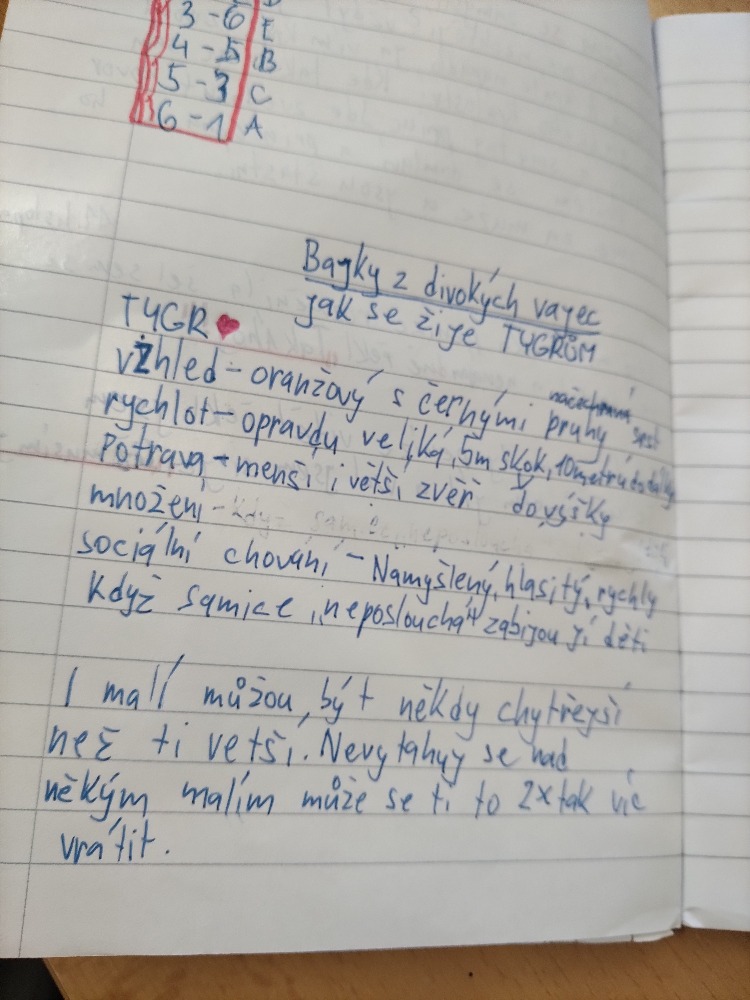 3-6 E
4-5 B
5-3 C
6-1 A
Bajky z divokých vajec
jak se žije TYGRŮM
TYGR
vzhled - oranžový s černými pruhy
rychlot - opravdu veliká, 5m skok, 10metrů do dálky
Potrava - menší i větší zvěř do výšky
množení -
sociální chování - Namyšlený, hlasitý, rychlý
Když samice neposlouchá zabijou jí děti
I malí můžou být někdy chytřejší
než ti vetší. Nevytahuj se nad
někým malím může se ti to 2x tak víc
vrátit.